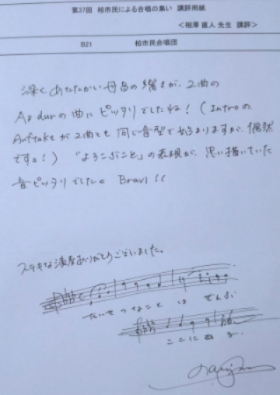 第37回 柏市民による合唱の集い 講評用紙
<相澤 直人 先生 講評>
B21 柏市民合唱団
深く あたたかい母音の響きが、2曲の
As durの曲に ピッタリでしたね! (Introの
Auftaktが2曲とも同じ音型で始まりますが、偶然
ですよ!) "よろこぶこと"の表現が、思い描いていた
音ピッタリでした。 Bravi!!
ステキな演奏ありがとうございました。
たいせつなことは ぜんぶ
ここにある